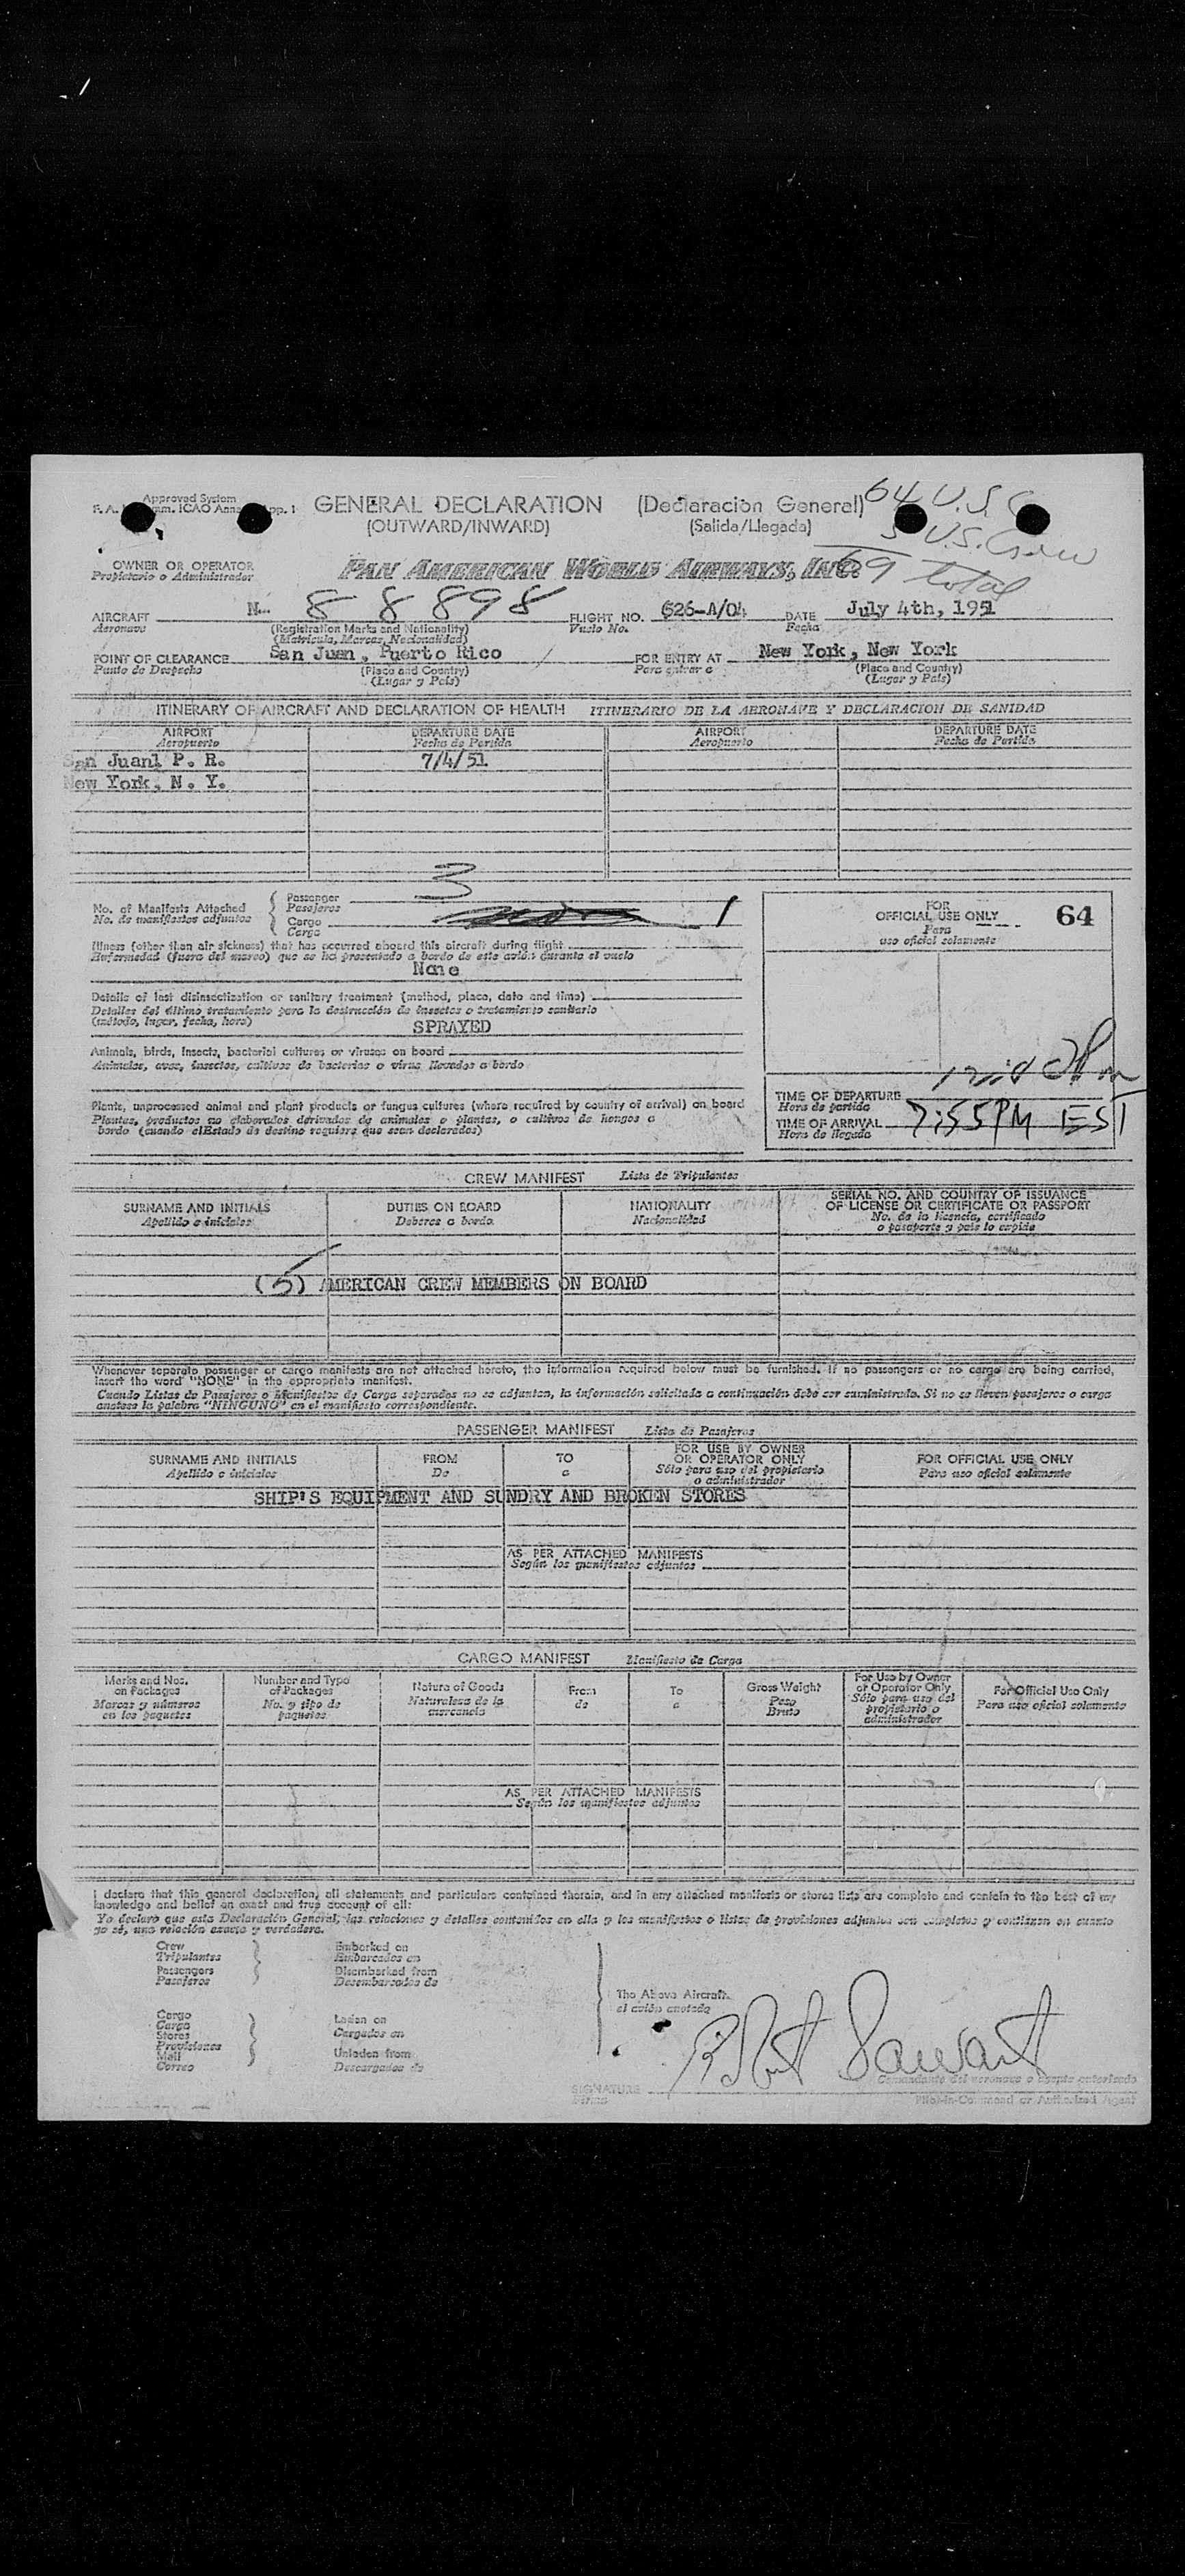 Approved System
GENERAL DECLARATION (Declaracion General) 64 U.S.C
(OUTWARD/INWARD) (Salida/Llegada) 5 U.S. Crew
69 total
OWNER OR OPERATOR
Propietario o Administrador
PAN AMERICAN WORLD AIRWAYS, INC.
AIRCRAFT N- 88898 FLIGHT NO. 626-A/04 DATE July 4th, 1951
Aeronave (Registration Marks and Nationality) Vuelo No. Fecha
(Matricula, Marcas, Nacionalidad)
POINT OF CLEARANCE San Juan, Puerto Rico FOR ENTRY AT New York, New York
Punto de Despacho (Place and Country) Para entrar a (Place and Country)
(Lugar y País) (Lugar y País)
ITINERARY OF AIRCRAFT AND DECLARATION OF HEALTH ITINERARIO DE LA AERONAVE Y DECLARACION DE SANIDAD
AIRPORT DEPARTURE DATE AIRPORT DEPARTURE DATE
Aeropuerto Fecha de Partida Aeropuerto Fecha de Partida
San Juanl P. R. 7/4/51
New York, N. Y.
No. of Manifests Attached Passenger 3
No. de manifiestos adjuntos Pasajeros
Cargo 1
Carga
FOR
OFFICIAL USE ONLY 64
Para
uso oficial solamente
Illness (other than air sickness) that has occurred aboard this aircraft during flight
Enfermedad (fuera del mareo) que se ha presentado a bordo de este avión durante el vuelo
None
Details of last disinsectization or sanitary treatment (method, place, date and time)
Detalles del último tratamiento para la destrucción de insectos o tratamiento sanitario
(método, lugar, fecha, hora)
SPRAYED
Animals, birds, insects, bacterial cultures or viruses on board
Animales, aves, insectos, cultivos de bacterias o virus llevados a bordo
Plants, unprocessed animal and plant products or fungus cultures (where required by country of arrival) on board
Plantas, productos no elaborados derivados de animales o plantas, o cultivos de hongos a
bordo (cuando el Estado de destino requiera que sean declarados)
TIME OF DEPARTURE
Hora de partida
TIME OF ARRIVAL 7:55PM EST
Hora de llegada
CREW MANIFEST Lista de Tripulantes
SURNAME AND INITIALS DUTIES ON BOARD NATIONALITY SERIAL NO. AND COUNTRY OF ISSUANCE
OF LICENSE OR CERTIFICATE OR PASSPORT
Apellido e iniciales Deberes a bordo Nacionalidad No. de la licencia, certificado
o pasaporte y país lo expide
(5) AMERICAN CREW MEMBERS ON BOARD
Whenever separate passenger or cargo manifests are not attached hereto, the information required below must be furnished. If no passengers or no cargo are being carried,
insert the word "NONE" in the appropriate manifest.
Cuando Listas de Pasajeros o Manifiestos de Carga separados no se adjuntan, la información solicitada a continuación debe ser suministrada. Si no se lleven pasajeros o carga
anotese la palabra "NINGUNO" en el manifiesto correspondiente.
PASSENGER MANIFEST Lista de Pasajeros
SURNAME AND INITIALS FROM TO FOR USE BY OWNER OR OPERATOR ONLY FOR OFFICIAL USE ONLY
Apellido e iniciales De a Sólo para uso del propietario o administrador Para uso oficial solamente
SHIP'S EQUIPMENT AND SUNDRY AND BROKEN STORES
AS PER ATTACHED MANIFESTS
Según los manifiestos adjuntos
CARGO MANIFEST Manifiesto de Carga
Marks and Nos. on Packages Number and Type of Packages Nature of Goods From To Gross Weight For Use by Owner or Operator Only For Official Use Only
Marcas y números en los paquetes No. y tipo de paquetes Naturaleza de la mercancia de a Peso Bruto Sólo para uso del propietario o administrador Para uso oficial solamente
AS PER ATTACHED MANIFESTS
Según los manifiestos adjuntos
I declare that this general declaration, all statements and particulars contained therein, and in any attached manifests or stores lists are complete and contain to the best of my
knowledge and belief an exact and true account of all:
Yo declaro que esta Declaración General, las relaciones y detalles contenidos en ella y los manifiestos o listas de provisiones adjuntos son completos y contienen en cuanto
yo sé, una relación exacta y verdadera.
Crew Embarked on
Tripulantes Embarcados en
Passengers Disembarked from
Pasajeros Desembarcados de
The Above Aircraft
el avión anotado
Cargo Laden on
Carga Cargados en
Stores
Provisiones
Mail Unladen from
Correo Descargados de
SIGNATURE
Firma
Comandante del aeronave o agente autorizado
Pilot-in-Command or Authorized Agent